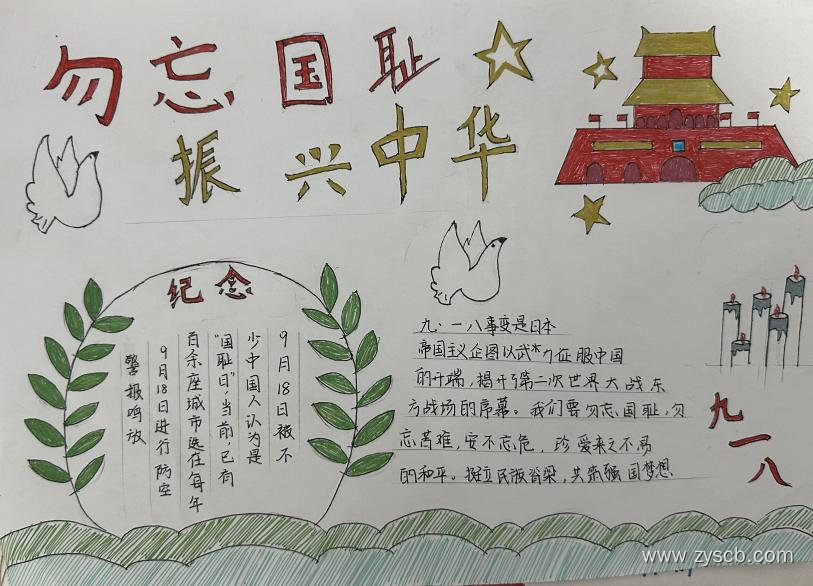 勿忘国耻
振兴中华
纪念
9月18日被不
少中国人认为是
"国耻日",当前,已有
百余座城市选在每年
9月18日进行防空
警报鸣放
九·一八事变是日本
帝国主义企图以武力征服中国
的开端,揭开了第二次世界大战东
方战场的序幕。我们要勿忘国耻,勿
忘苦难,安不忘危,珍爱来之不易
的和平。挺立民族脊梁,共筑强国梦想
九一八
www.zyscb.com